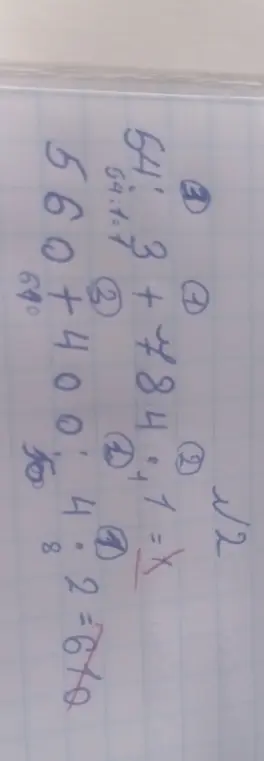 №2
③ ① ②
54 : 3 + 784 : 1 = x
54:1=1
③ ② ①
560 + 400 : 4 : 2 = 610
610 50 8